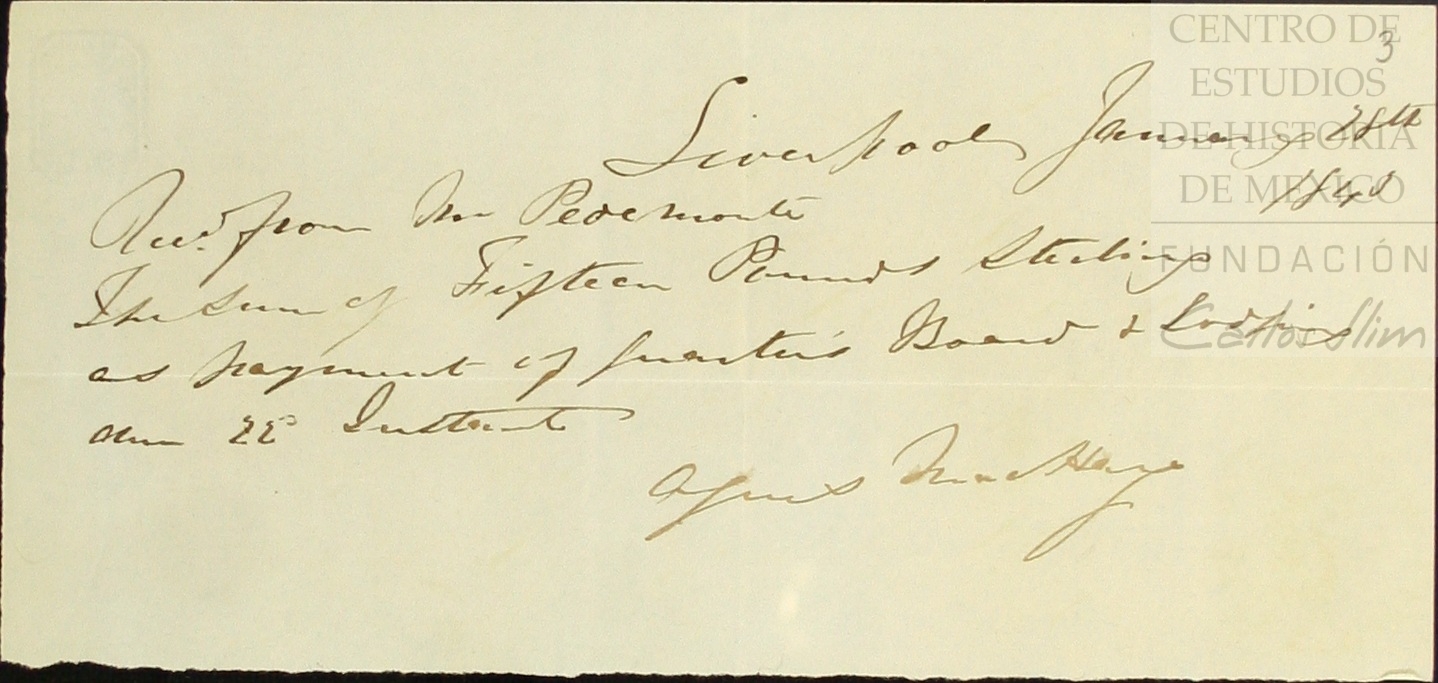 3
Liverpool January 28th
184
Recd. from Mr Pedemonte
The Sum of Fifteen Pounds Sterling
as payment of Quarter's Board & Lodging
due 22d Instant
Agnes MacHay
CENTRO DE
ESTUDIOS
DE HISTORIA
DE MÉXICO
FUNDACIÓN
Carlos Slim